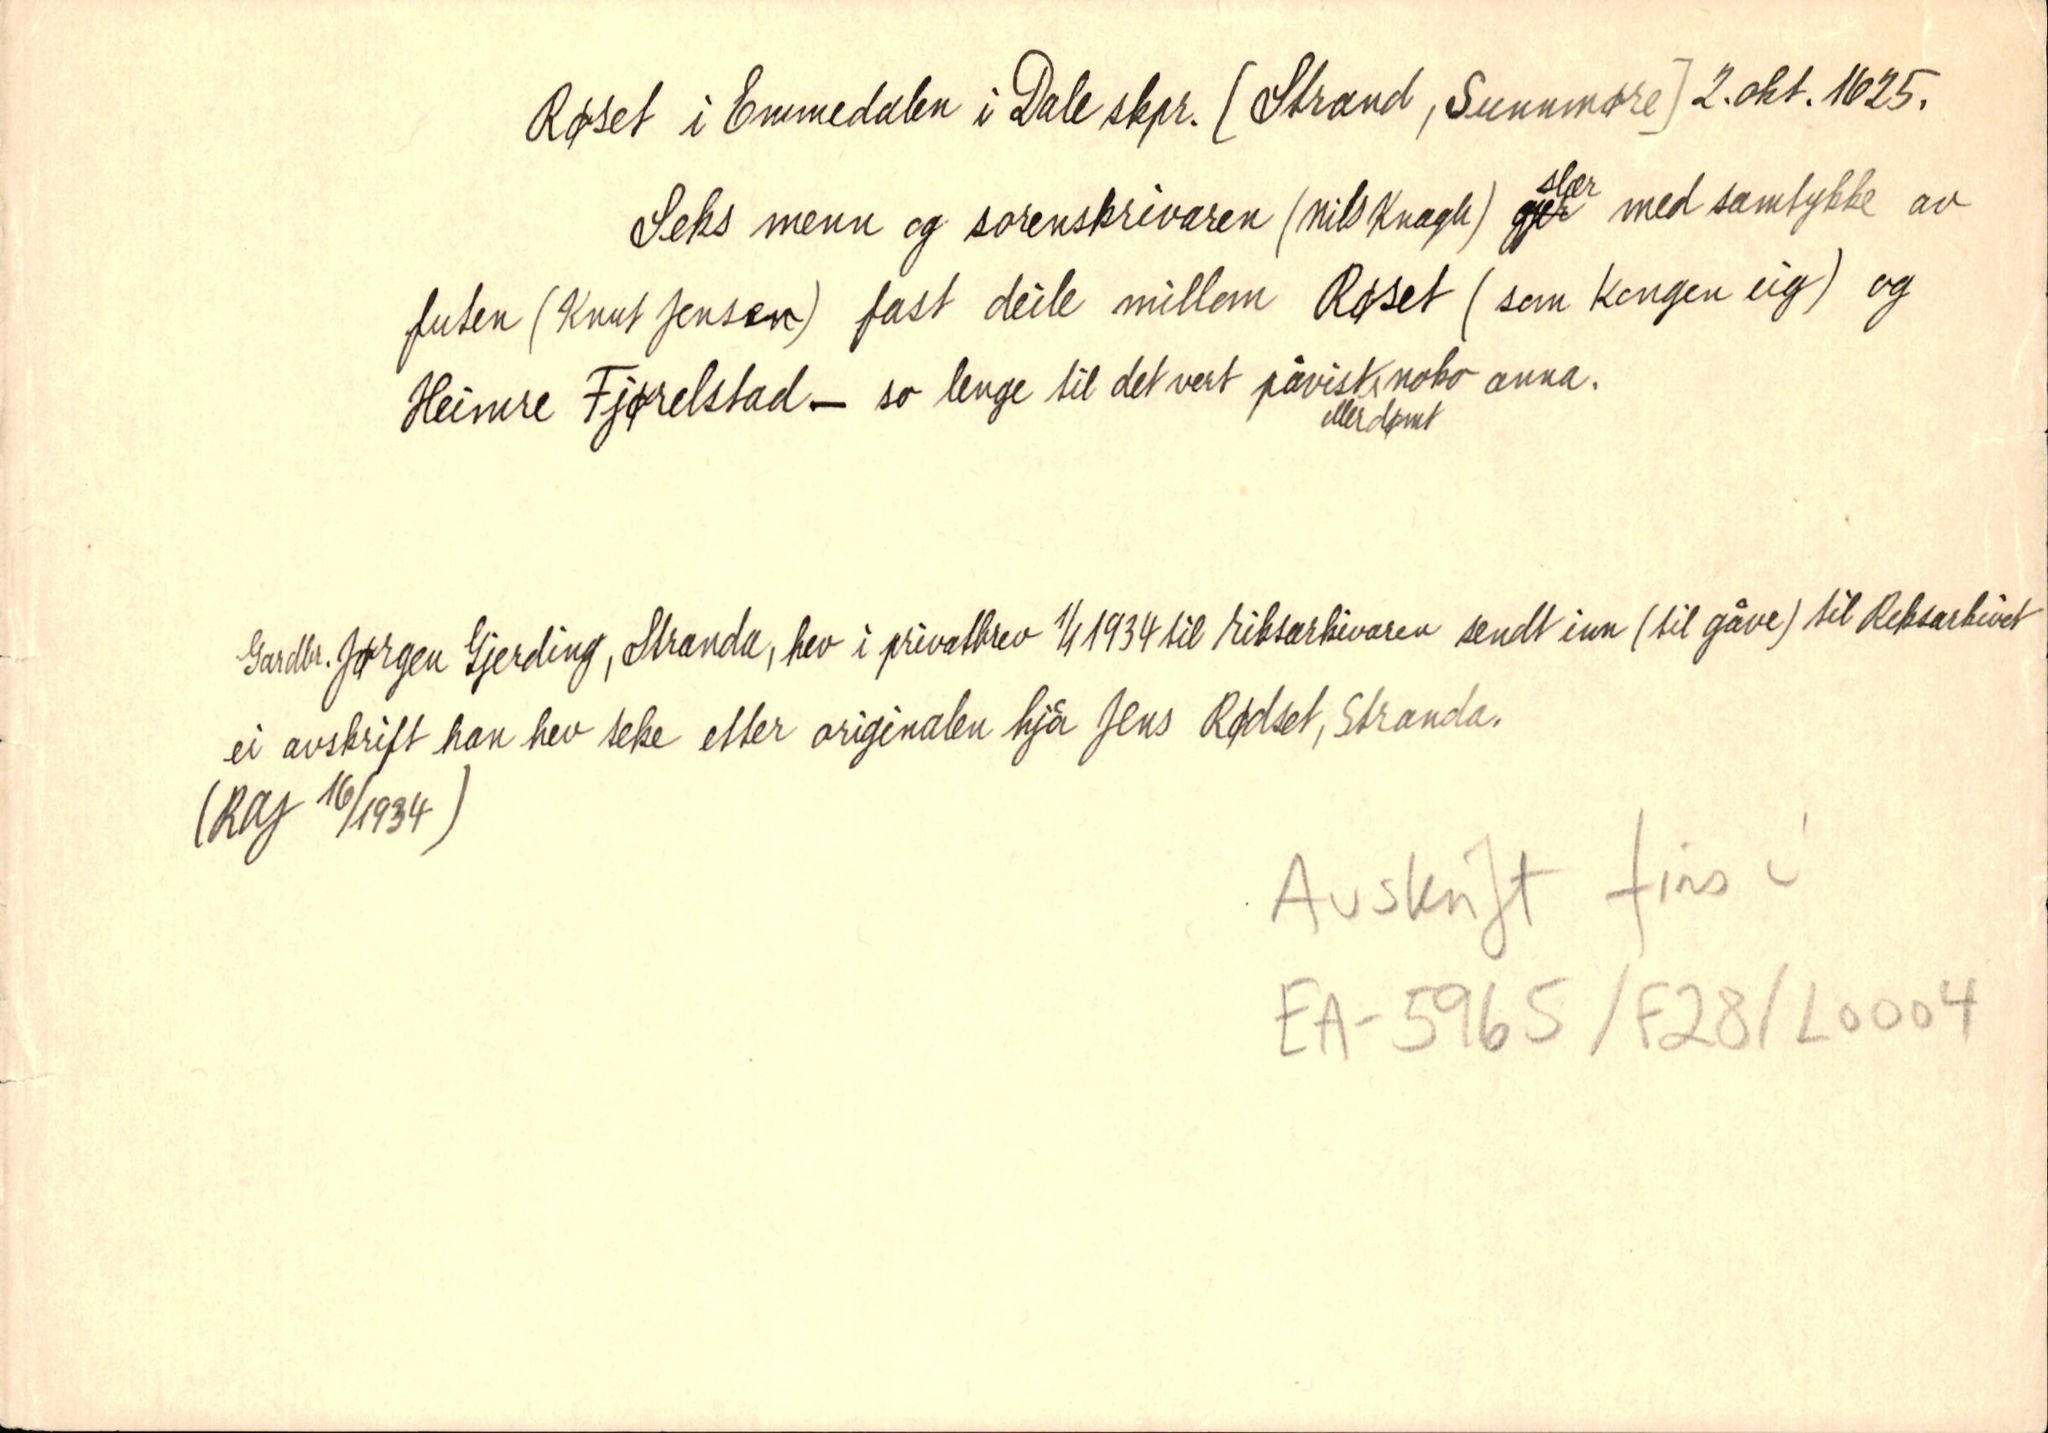 Røset i Emmedalen i Dale skpr. [Strand, Sunnmøre] 2. okt. 1625.
Seks menn og sorenskrivaren (Nils Knagh) slær med samtykke av
futen (Knut Jensen) fast deile millom Røset (som Kongen eig) og
Heimre Fjørelstad - so lenge til det vert påvist eller dømt noko anna.
Gardbr. Jørgen Gjerding, Stranda, hev i privatbrev 1/1 1934 til riksarkivaren sendt inn (til gåve) til Riksarkivet
ei avskrift han hev teke etter originalen hjå Jens Rødset, Stranda.
(RAJ 16/1934)
Avskrift fins i
EA-5965/F28/L0004